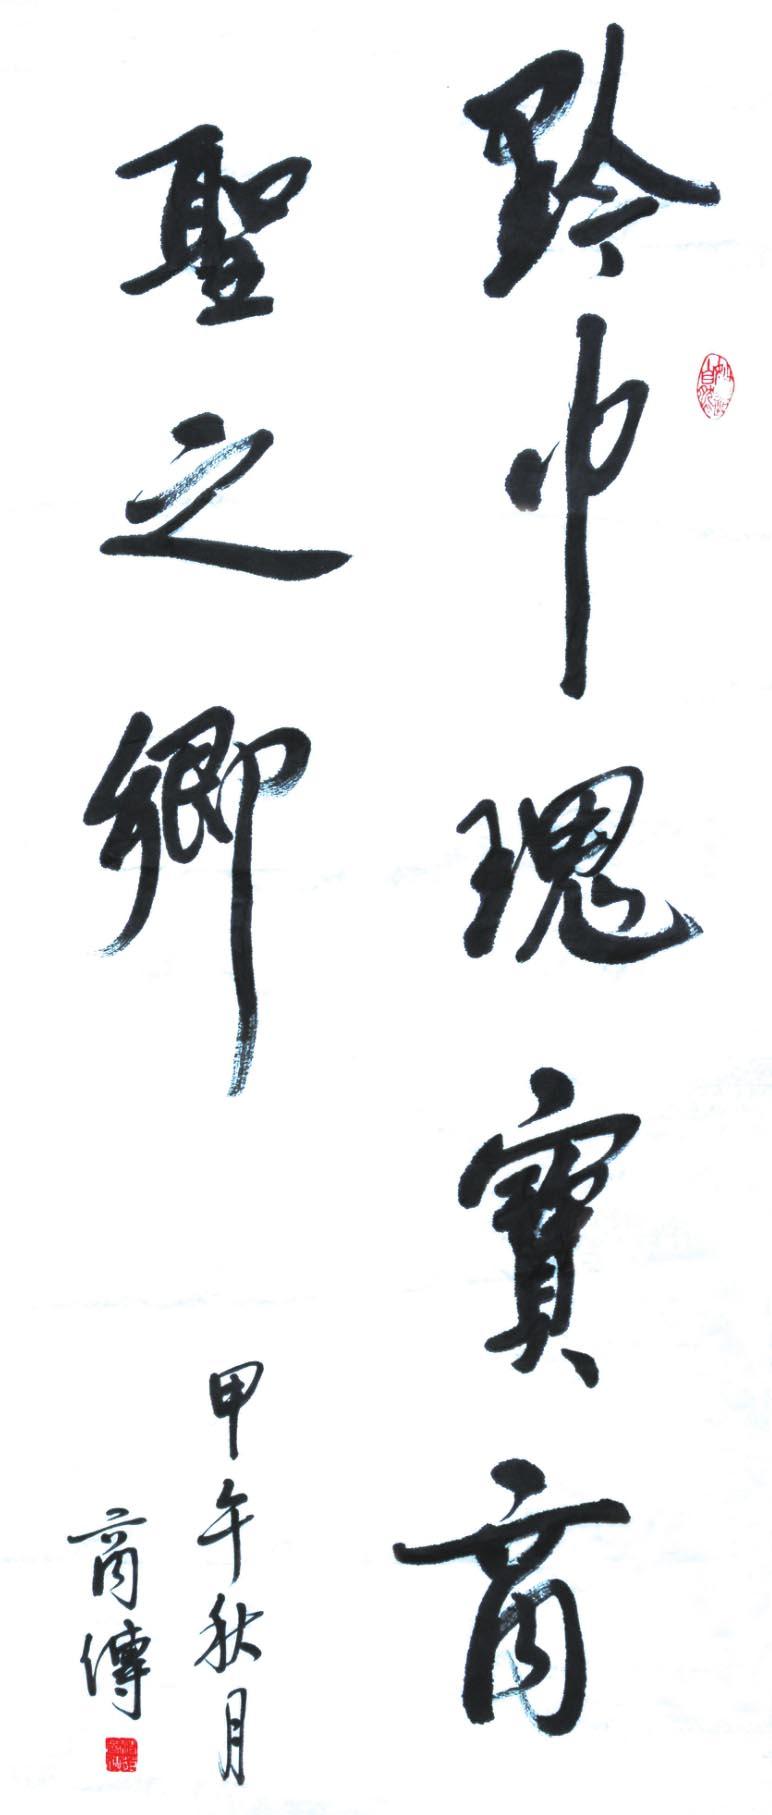 黔中瑰寶商
聖之鄉
甲午秋月
商傳